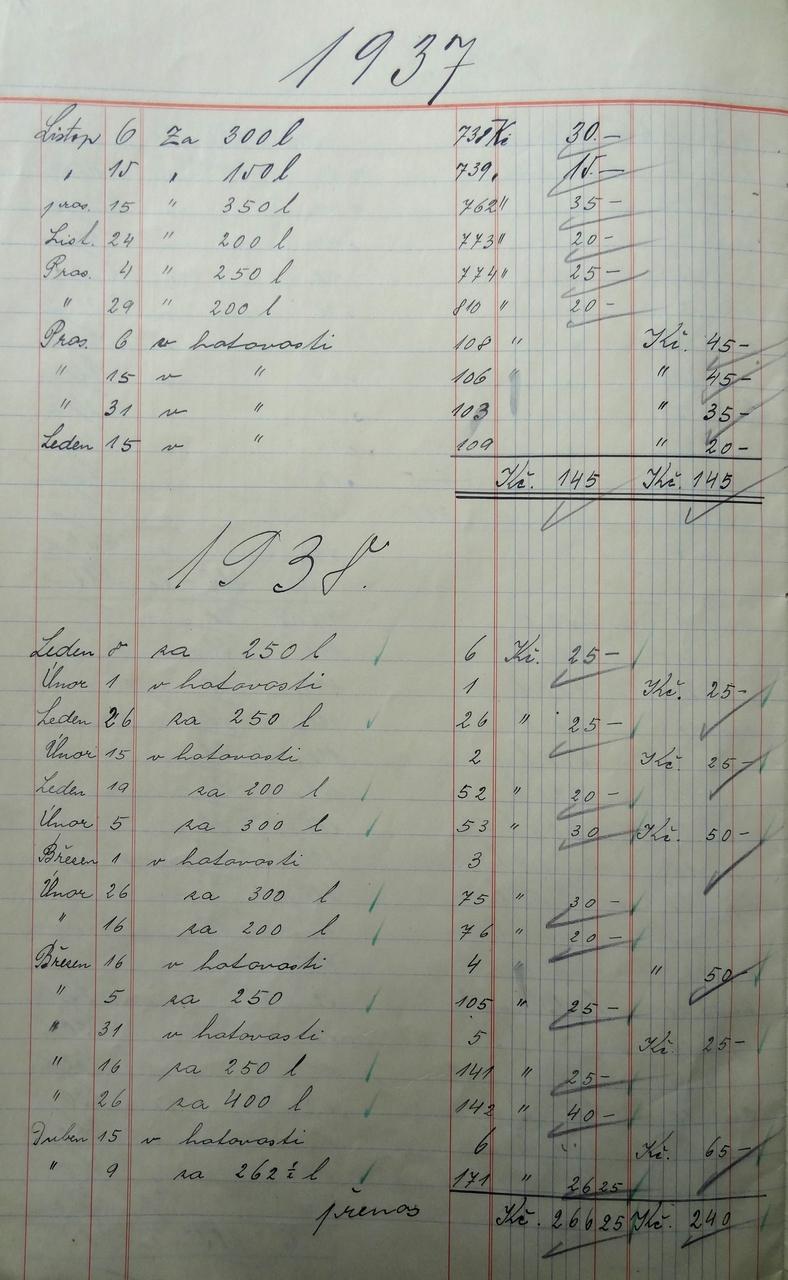 1937
Listop 6 Za 300 l 738 Kč 30.—
" 15 " 150 l 739 " 15.—
pros. 15 " 350 l 762 " 35—
List. 24 " 200 l 773 " 20—
Pros. 4 " 250 l 774 " 25—
" 29 " 200 l 810 " 20—
Pros. 6 v hotovosti 108 " Kč. 45—
" 15 v " 106 " " 45—
" 31 v " 103 " 35—
Leden 15 v " 109 " 20—
Kč. 145 Kč. 145
1938.
Leden 8 za 250 l 6 Kč. 25—
Únor 1 v hotovosti 1 Kč. 25—
Leden 26 za 250 l 26 " 25—
Únor 15 v hotovosti 2 Kč. 25—
Leden 19 za 200 l 52 " 20—
Únor 5 za 300 l 53 " 30 Kč. 50—
Březen 1 v hotovosti 3
Únor 26 za 300 l 75 " 30—
" 16 za 200 l 76 " 20—
Březen 16 v hotovosti 4 " " 50
" 5 za 250 105 " 25—
" 31 v hotovosti 5 Kč. 25—
" 16 za 250 l 141 " 25—
" 26 za 400 l 142 " 40—
Duben 15 v hotovosti 6 Kč. 65—
" 9 za 262 ½ l 171 " 26 25
přenos Kč. 266 25 Kč. 240